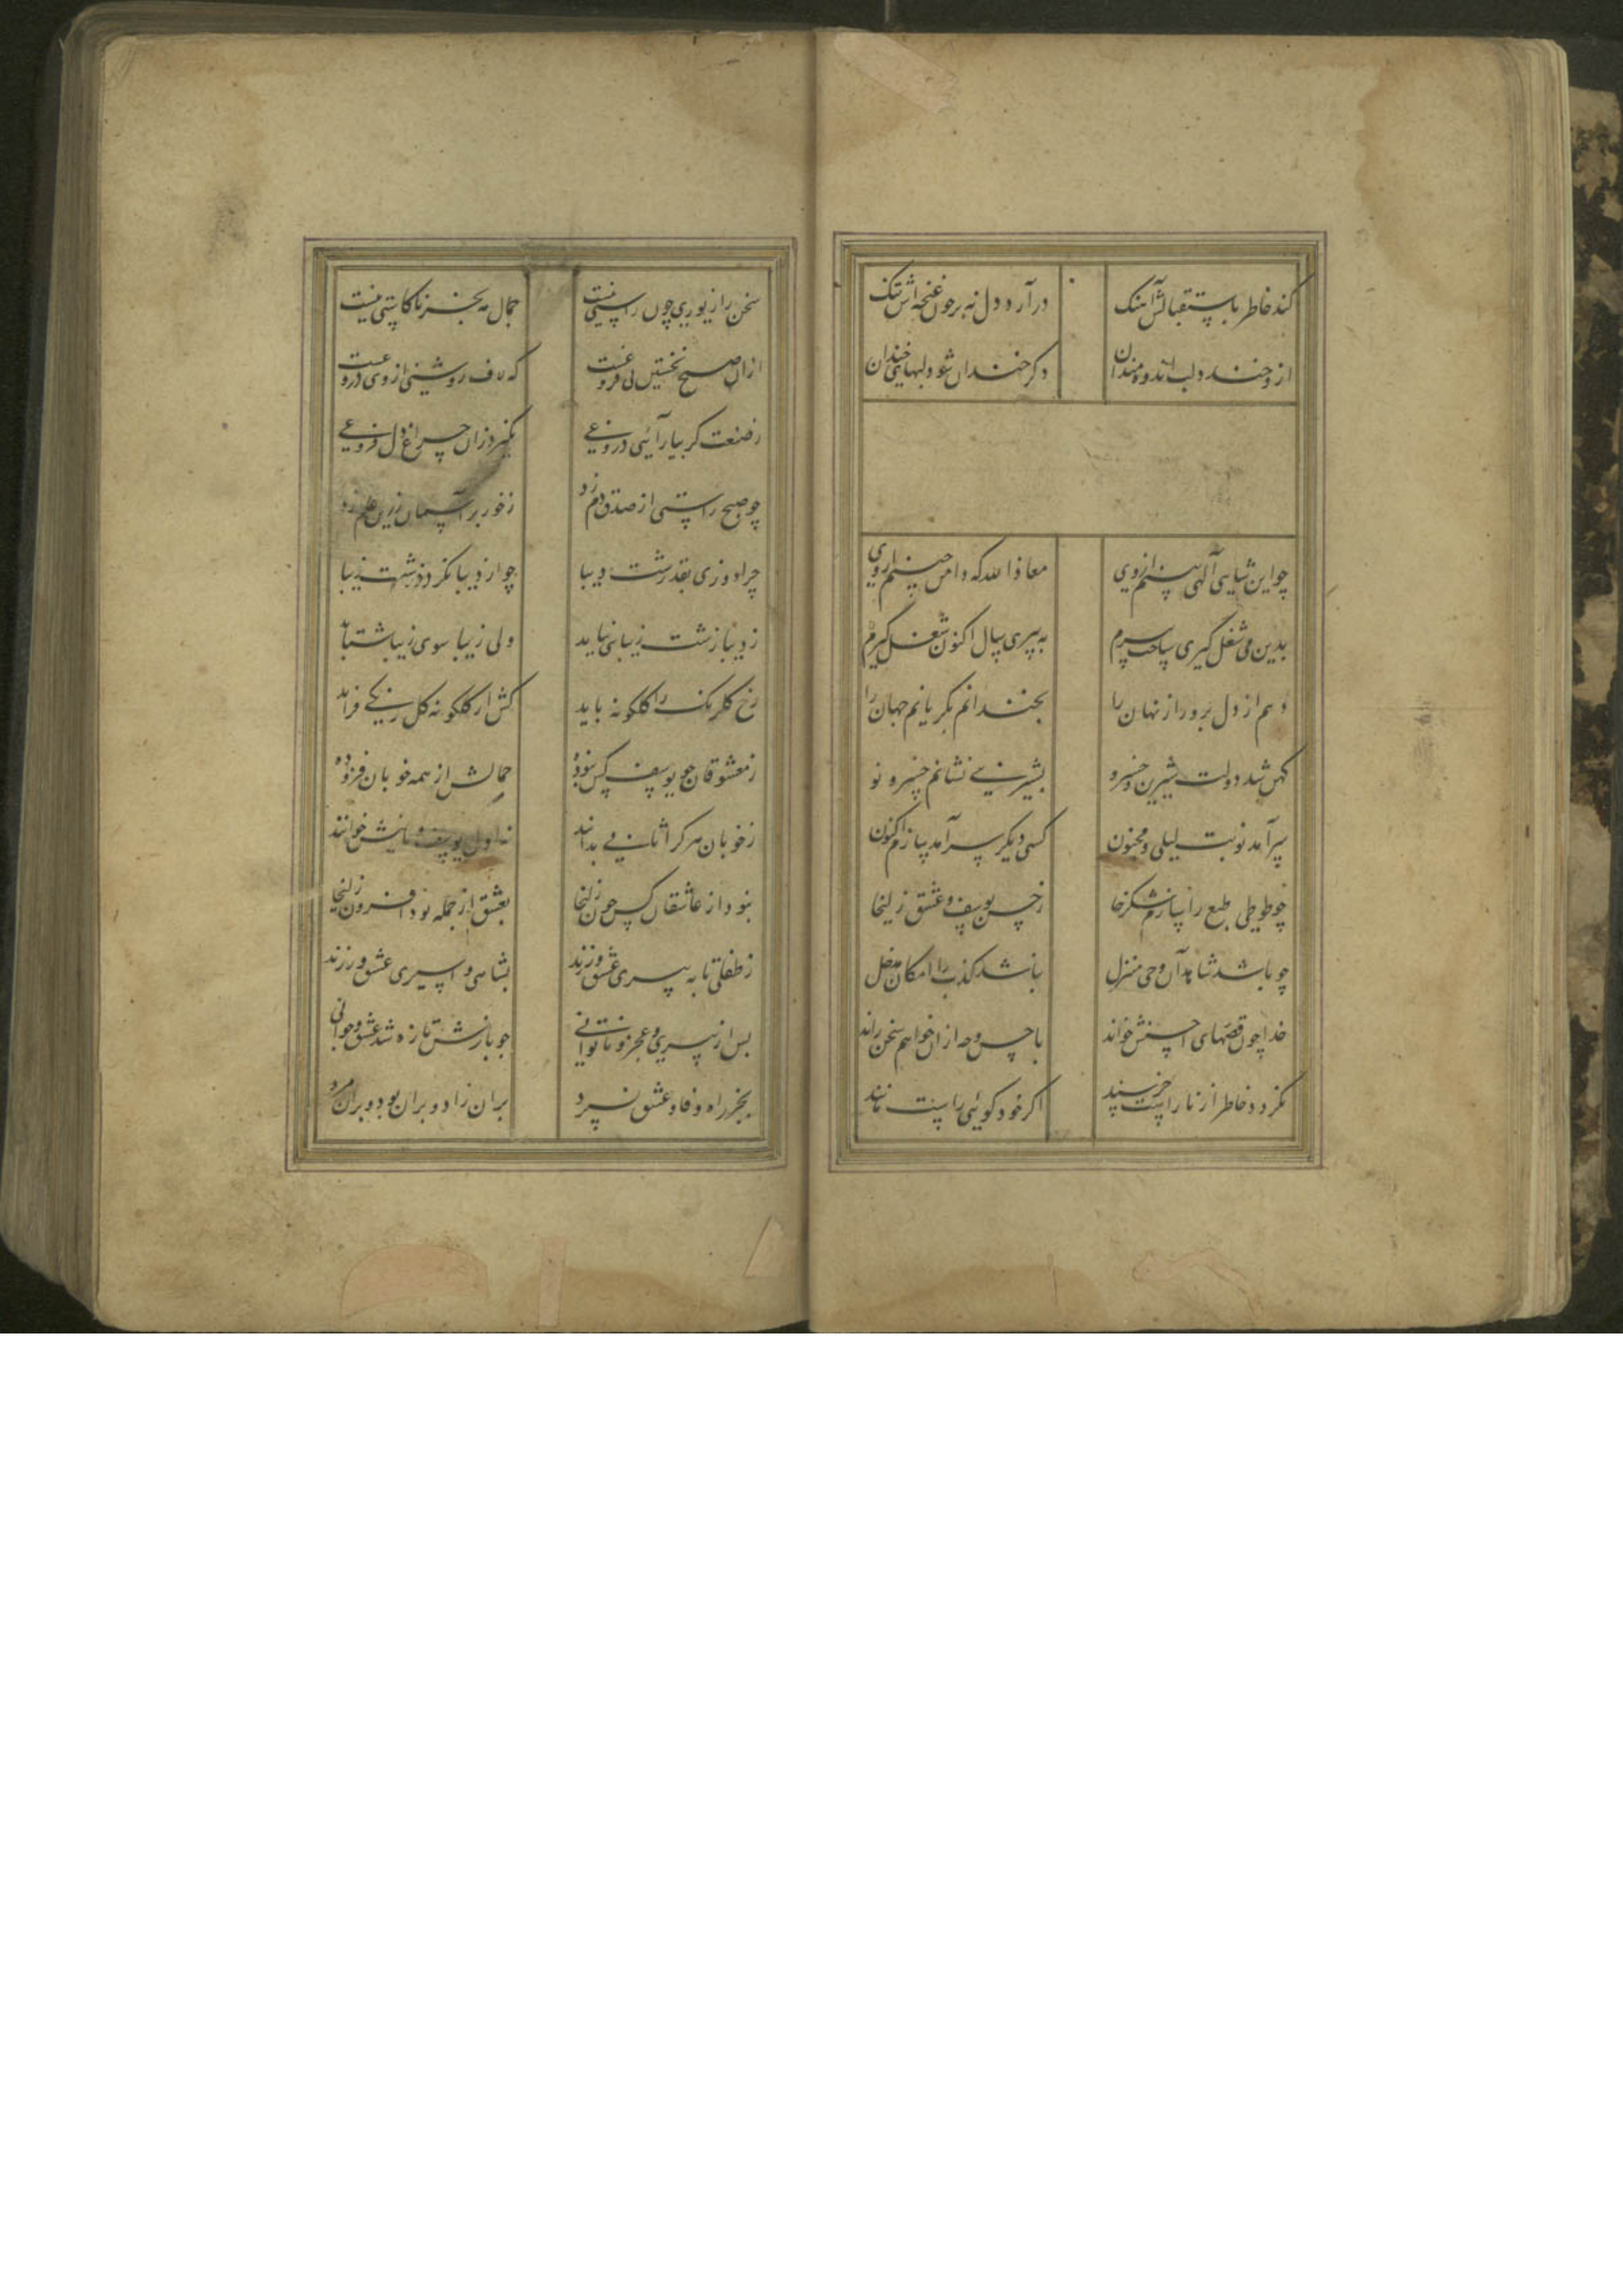 کند خاطر باستقبالش آهنگ درآرد دل ببر چون غنچه‌اش تنگ
ازو خندد لب اندوه‌مندان وگر خندان شود لبهای خندان
چو این شیاهی آلهی بینم از وی معاذ الله که دامن چینم از وی
بدین می شغل گیری ساخت پیرم به پیری سال اکنون شغل گیرم
دهم از دل برو راز نهان را بخندانم بگریانم جهان را
کهن شد دولت شیرین و خسرو بشیرینی نشانم خسرو نو
سرآمد نوبت لیلی و مجنون کسی دیگر سرآمد سازم اکنون
چو طوطی طبع را سازم شکرخا ز حسن یوسف و عشق زلیخا
چو باشد شاهد آن وحی منزل نباشد کذب را امکان مدخل
خدا چون قصهای احسنش خواند باحسن وجه ازان خواهم سخن راند
نگردد خاطر از ناراست خرسند اگر خود گوئی راست مانند
سخن را زیوری چون راستی نیست جمال مه بجز ناکاستی نیست
ازان صبح نخستین بی‌فروغست که لاف روشنی از وی دروغست
ز صنعت گر بیارائی دروغی نگیرد زان چراغ دل فروغی
چو صبح راستی از صدق دم زد ز خور بر آسمان زرین علم زد
چرا دوزی بقد زشت دیبا چو از دیبا نگردد زشت زیبا
ز دیبا زشت زیبائی نیابد ولی زیبا سوی زیبا شتابد
رخ گلرنگ را گلگونه باید کش از گلگونه گل رنگی فزاید
ز معشوقان چو یوسف کس نبوده جمالش از همه خوبان فزوده
ز خوبان هر کرا ثانی بدانند ز اول یوسف ثانیش خوانند
نبود از عاشقان کس چون زلیخا بعشق از جمله بود افزون زلیخا
ز طفلی تا به پیری عشق ورزید بشاهی و اسیری عشق ورزید
پس از پیری و عجز و ناتوانی چو بازش تازه شد عشق و جوانی
بجز راه وفا و عشق نسپرد بران زاد و بران بود و بران مرد